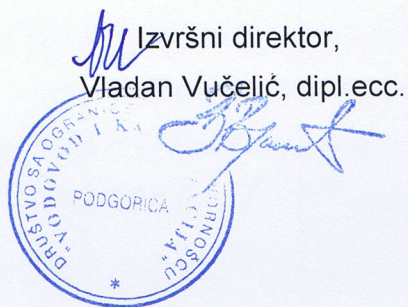 Izvršni direktor,
Vladan Vučelić, dipl.ecc.
DRUŠTVO SA OGRANIČE ORNOŠĆU
"VODOVOD I KA CIJA"
PODGORICA